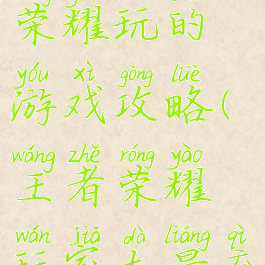 荣耀玩的
yóu xì gōng lüè
游戏攻略(
wáng zhě róng yào
王者荣耀
wán jiā dà liàng qì
玩家大量弃